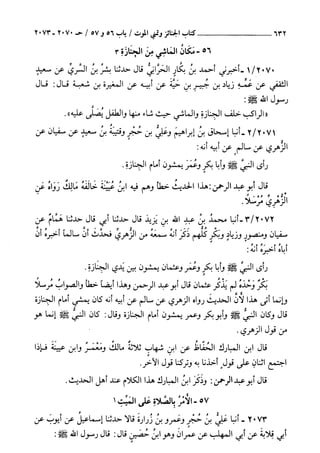 ٦٣٢ كتاب الجنائز وتمني الموت / باب ٥٦ و ٥٧ / حـ ٢٠٧٠ - ٢٠٧٣
٥٦ - مَكَانُ المَاشِي مِنَ الجَنَازَةِ ٣
١/٢٠٧٠ - أخبرني أحمد بنُ بكَّارٍ الحَرَّانيُّ قال حدثنا بشرُ بنُ السَّرِيِّ عن سعيدٍ
الثقفي عن عَمِّهِ زيادِ بنِ جُبيرِ بنِ حَيَّةَ عن أبيه عن المغيرة بن شعبة قال: قال
رسول الله ﷺ:
«الراكب خلف الجنازةِ والماشِي حيث شاء منها والطفل يُصَلَّى عليه».
٢/٢٠٧١ - أنبا إسحاق بنُ إبراهيمَ وعَليُّ بن حُجْرٍ وقتيبَةُ بنُ سعيدٍ عن سفيان عن
الزُّهري عن سالمٍ عن أبيه أنه:
رأى النبيَّ ﷺ وأبا بكرٍ وعُمَرَ يمشون أمام الجنازةِ.
قال أبو عبد الرحمن: هذا الحديثُ خطأ وهم فيه ابنُ عُيَيْنَةَ خَالَفَهُ مَالِكٌ رَوَاهُ عَنِ
الزُّهْرِيِّ مُرْسَلاً.
٣/٢٠٧٢ - أنبا محمدُ بنُ عبد الله بنِ يَزيدَ قال حدثنا أبي قال حدثنا هَمَّامٌ عن
سفيانَ ومنصورٍ وزيادٍ وبَكْرٍ كُلُّهم ذكَرَ أنهُ سمعَهُ من الزُّهريِّ فحدَّثَ أنَّ سالماً أخبرهُ أنَّ
أباهُ أخبرَهُ أنهُ:
رأى النبيَّ ﷺ وأبا بكرٍ وعُمَرَ وعثمان يمشون بين يَدَيِ الجَنازةِ.
بَكْرٌ وَحْدَهُ لم يَذْكُر عثمان قال أبو عبد الرحمن وهذا أيضا خطأ والصوابُ مُرسلاً
وإنما أتى هذا لأنَّ الحديثَ رواه الزهري عن سالم عن أبيه أنه كان يمشِي أمام الجنازة
قال وكان النبيُّ ﷺ وأبو بكرٍ وعمر يمشون أمام الجنازة وقال: كان النبيُّ ﷺ إنما هو
من قول الزهري.
قال ابن المبارك الحُفَّاظُ عن ابنِ شهابٍ ثلاثةٌ مالكٌ ومَعْمَرٌ وابن عيينةَ فإذا
اجتمع اثنان على قولٍ أخذنا به وتركنا قولَ الآخر.
قال أبو عبد الرحمن: وذكَرَ ابنُ المبارك هذا الكلام عند أهل الحديث.
٥٧ - الأَمْرُ بِالصَّلاةِ عَلَى المَيِّتِ ١
٢٠٧٣ - أنبا عَليُّ بنُ حُجْرٍ وعَمرو بنُ زُرارةَ قالا حدثنا إسماعيلُ عن أيوبَ عن
أبي قلابةَ عن أبي المهلب عن عمرانَ وهو ابنُ حُصَينٍ قال: قال رسول الله ﷺ: